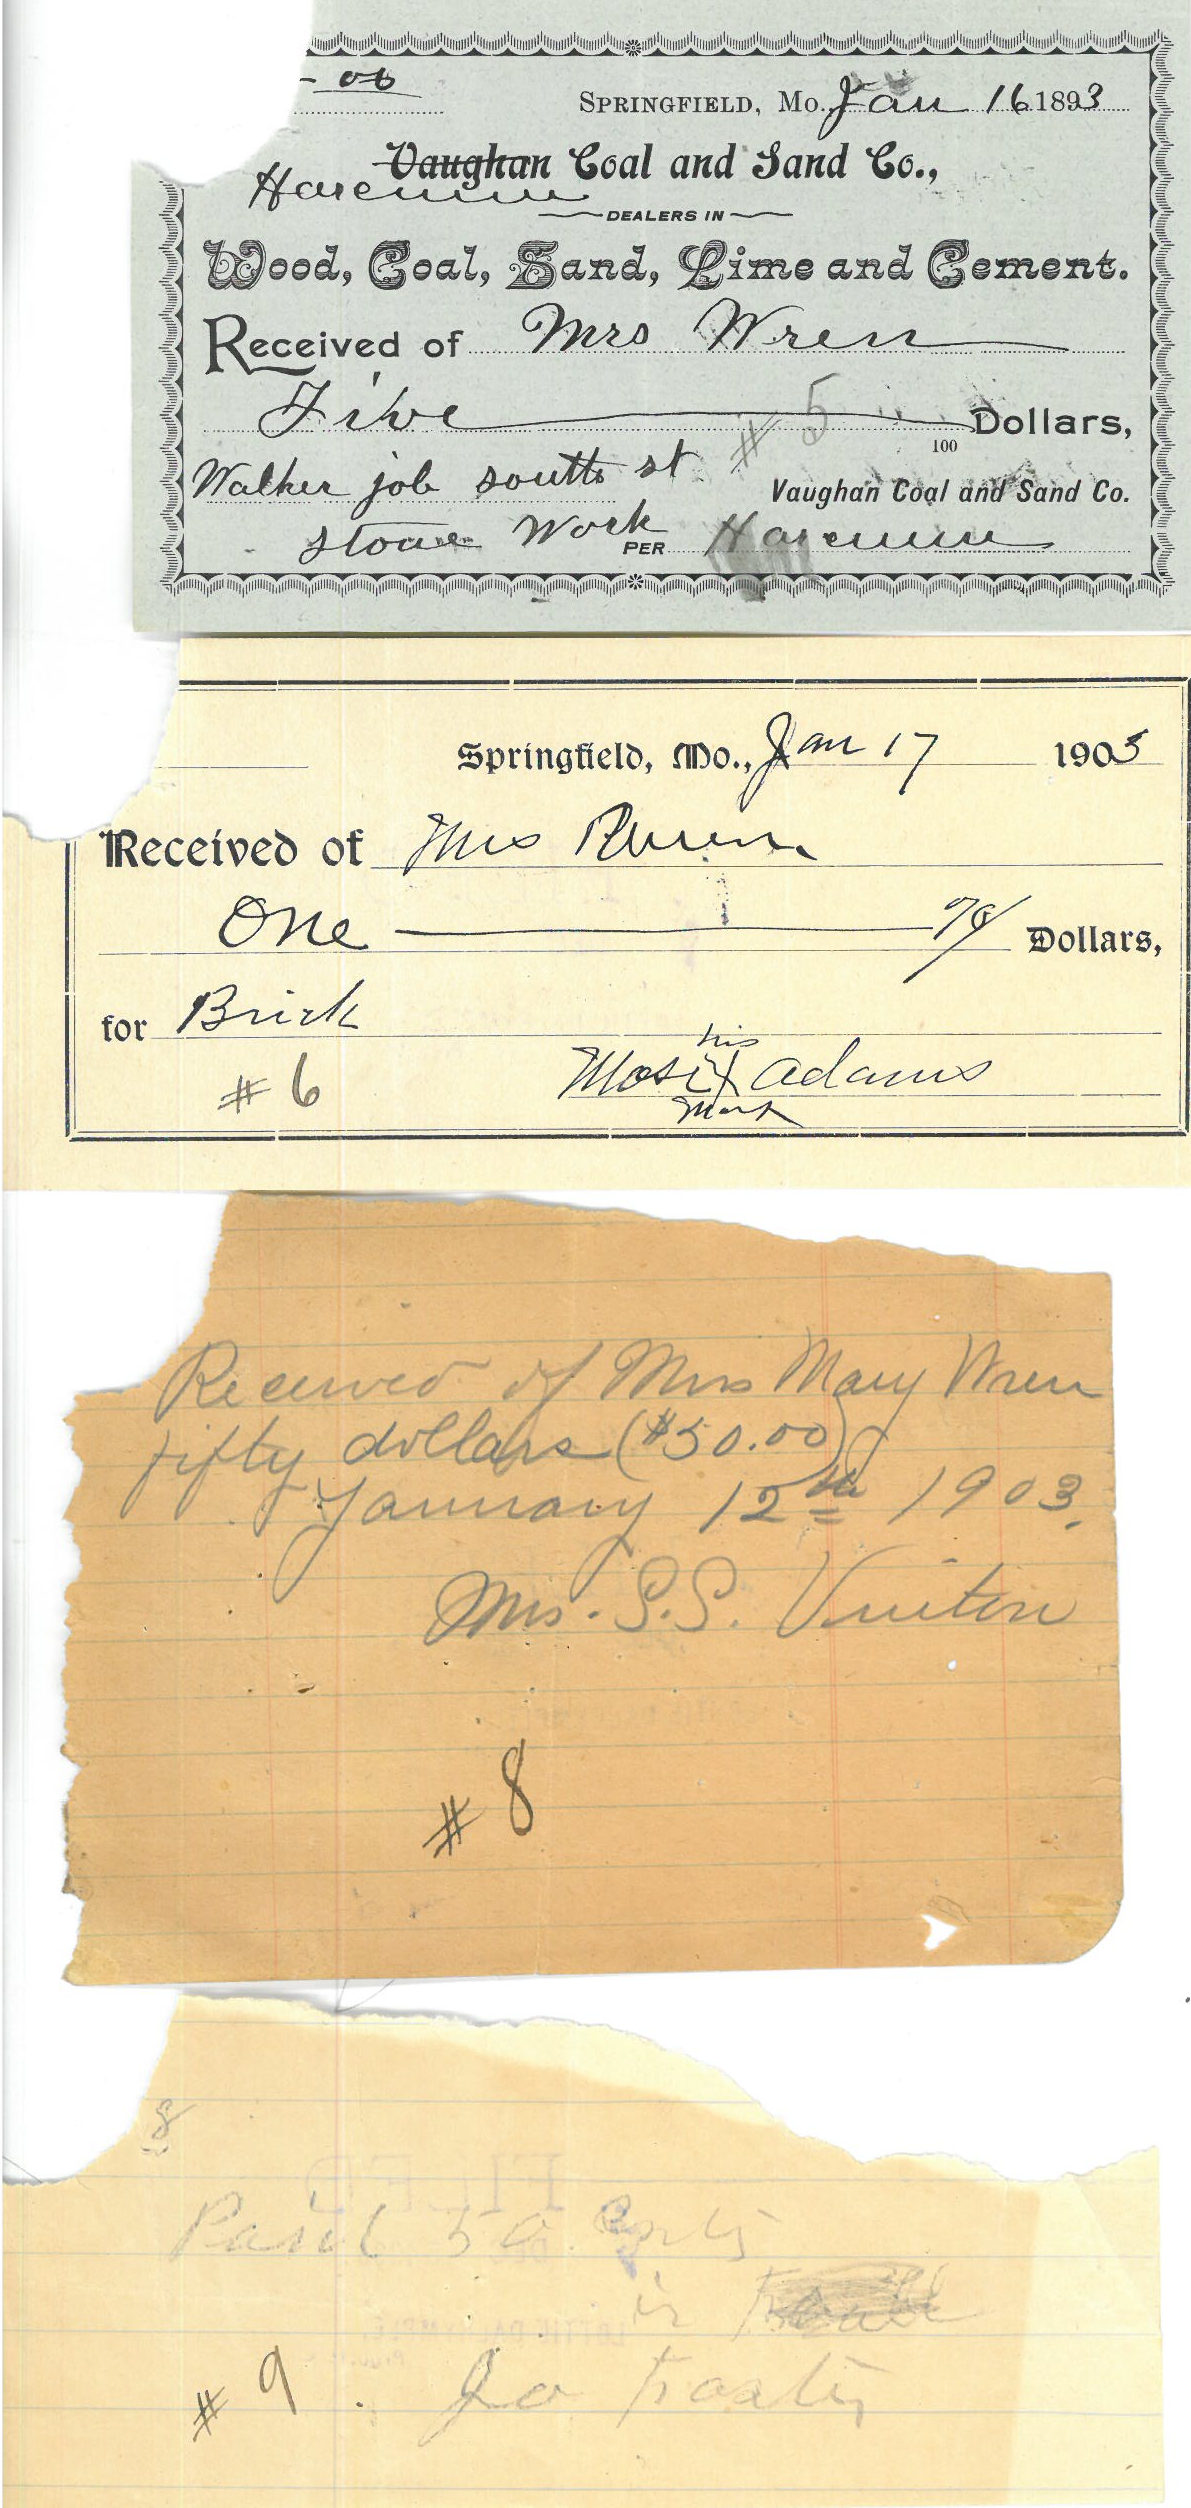 - 00
SPRINGFIELD, Mo. Jan 16 1893
Vaughan Coal and Sand Co.,
DEALERS IN
Wood, Coal, Sand, Lime and Cement.
Received of Mrs Wren
Five # 5 Dollars,
100
Walker job south st
Vaughan Coal and Sand Co.
stone Work PER
Springfield, Mo., Jan 17 1903
Received of Mrs
One Dollars,
for Brick
his
Mose X Adams
mark
# 6
Received of Mrs Mary Wren
fifty dollars ($50.00)
January 12th 1903.
Mrs. S.S. Vinton
# 8
8
Paid 50
FILED
LOTTIE DALRYMPLE,
# 9 Jo